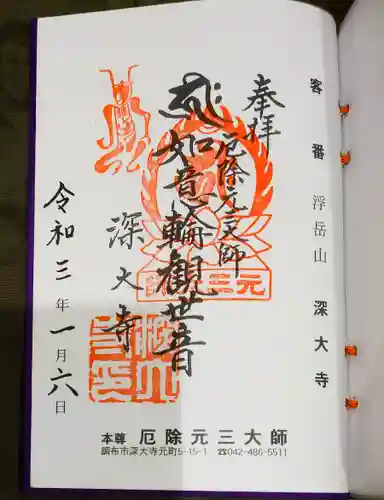 客番 浮岳山 深大寺
奉拝
厄除元三大師
如意輪観世音
深大寺
令和三年一月六日
元三大師
本尊 厄除元三大師
調布市深大寺元町5-15-1 ☎042-486-5511